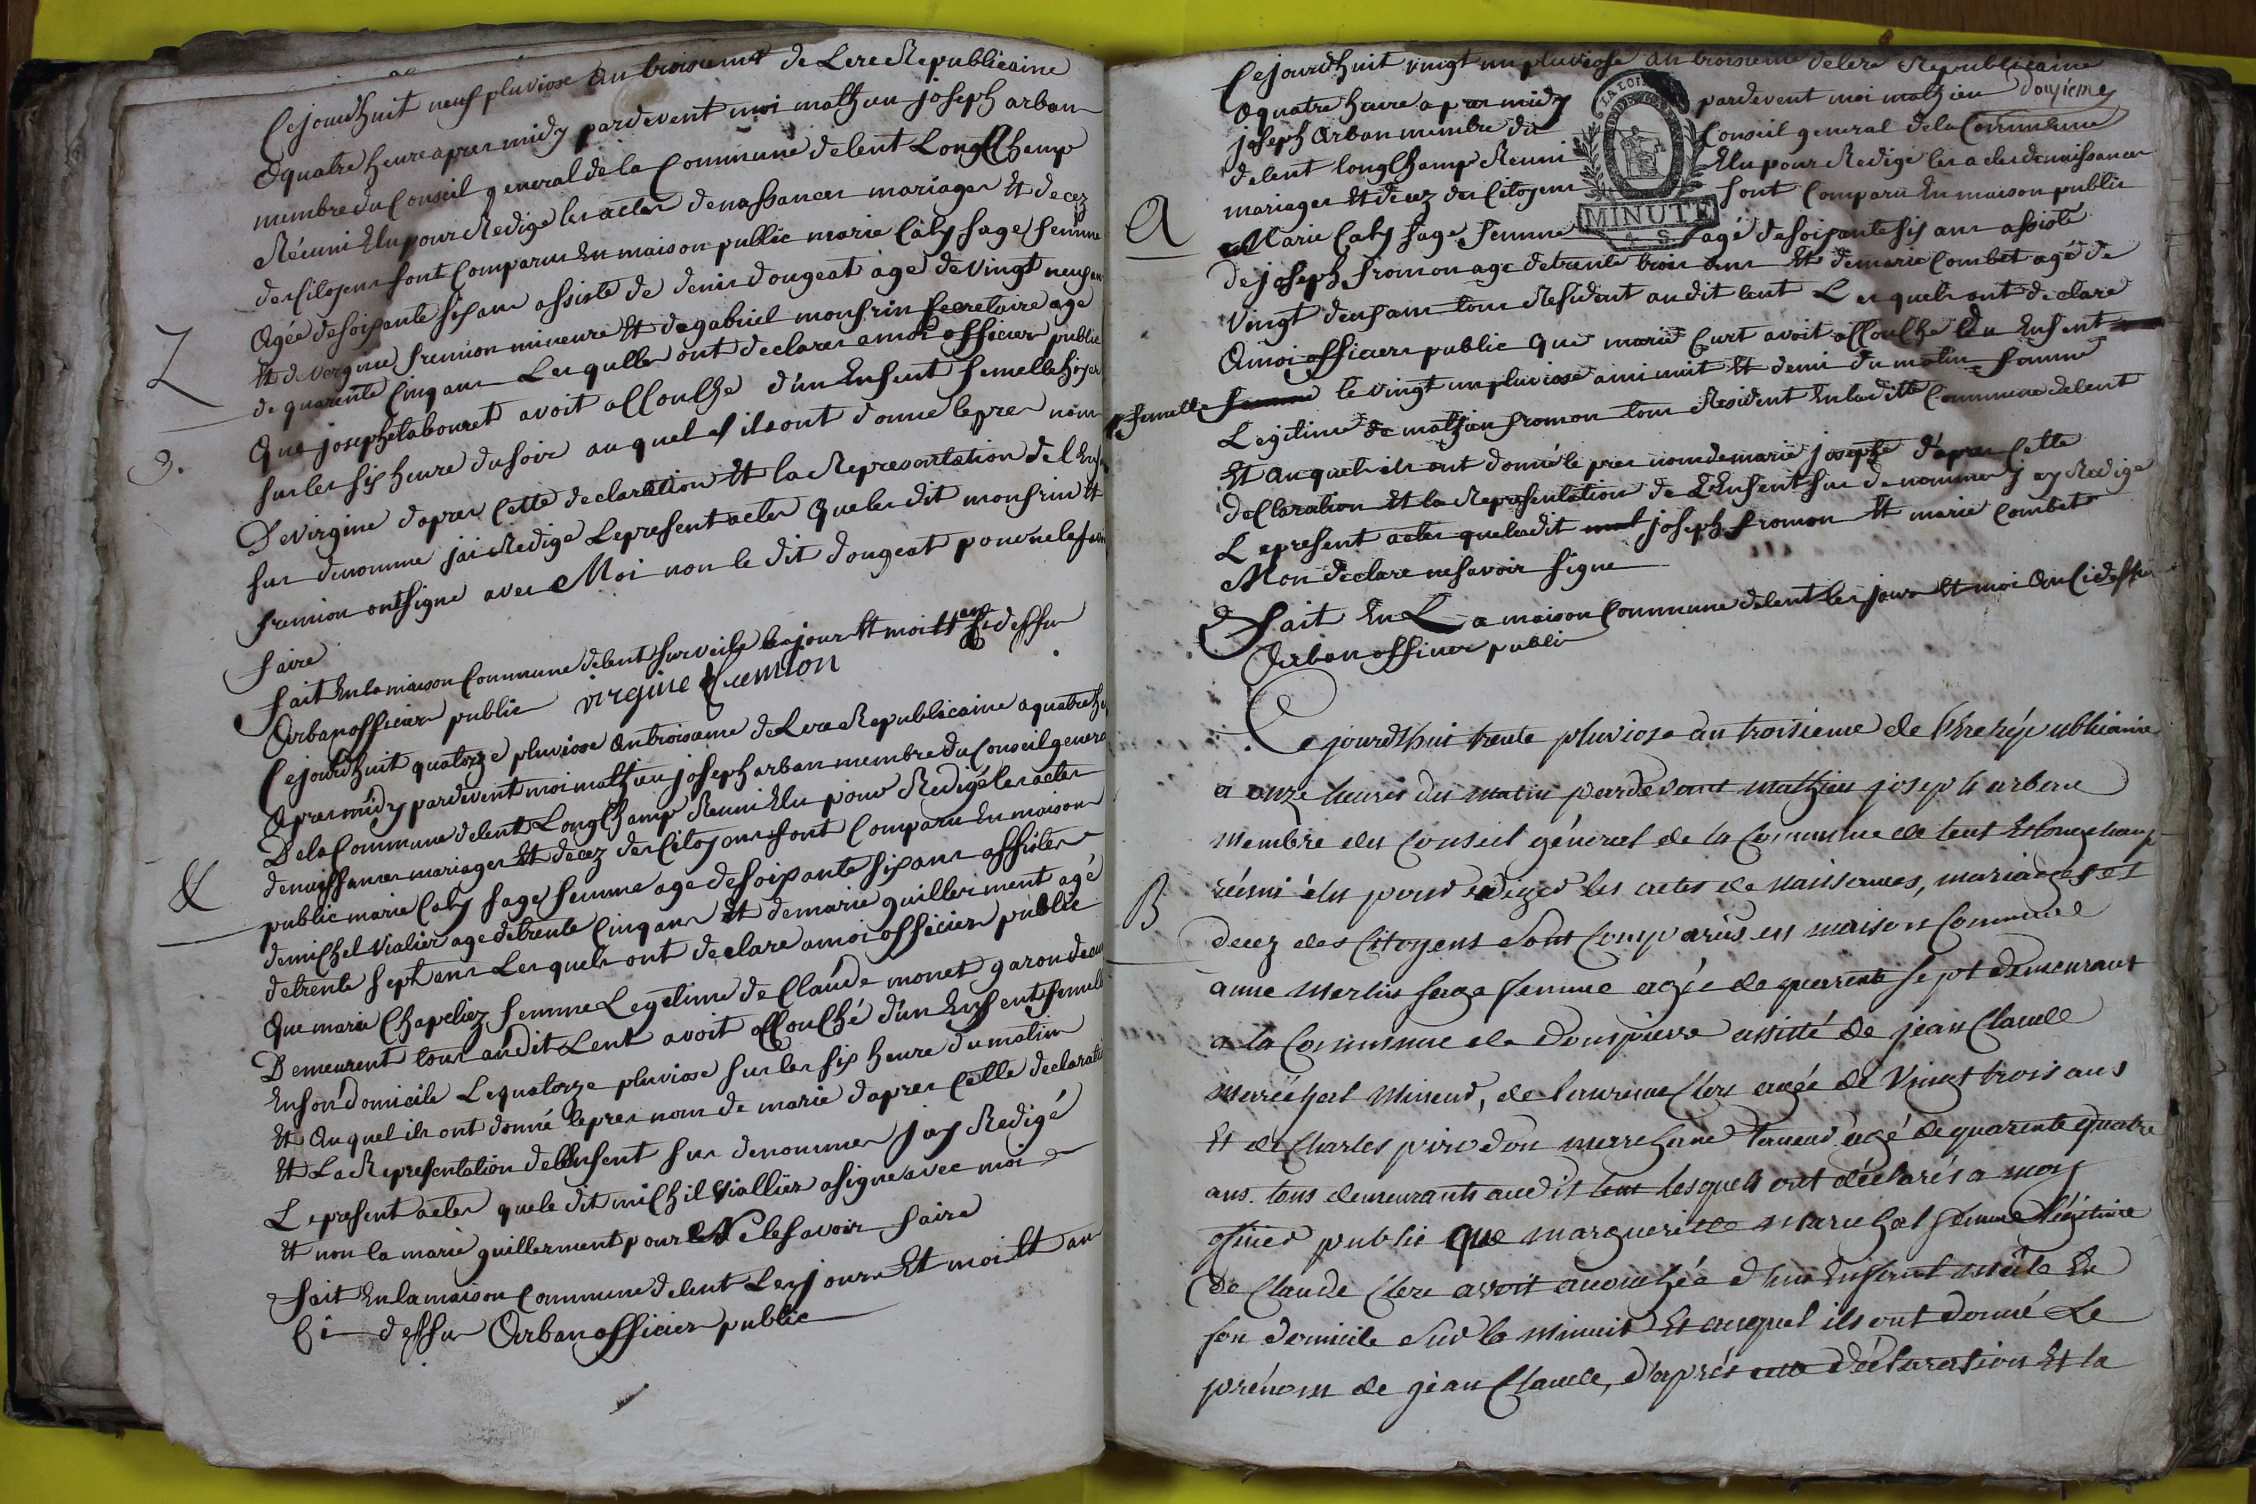 Cejourdhuit neuf pluviose an troisieme de Lere Republicaine
a quatre heure apres midy pardevent moi mathieu joseph arban
membre du Conseil general de la Commune delent Longchamp
Réuni Elu pour Redige les actes de naissances mariages Et decez
des Citoyens sont Comparus En maison public marie Caty sage femme
Z
Agée de soixante six ans assiste de denis dougeat agé de vingt neuf ans
Et de vergine fremion mineure Et de gabriel monfrin secretaire age
de quarente Cinq ans Lesqulles ont declarer a moi officier public
que josephe labouret avoit allouche d'un Enfent femelle hyer
9.
sur les six heure du soir auquel ils ont donne le pres nom
De virgine d'apres Cette declaration Et la Represontation de l'Enfent
sus denomme jai Redige Le present actes que les dit monfrin Et
fremion ont signe avec Moi non le dit dougeat pour ne le savoir
faire
fait En la maison Commune delent sur veile les jour Et moi Et an Ci dessu
Arban officier public virgine fremion
Cejourdhuit quatorze pluviose an troisieme de Lere Republicaine a quatre heure
apres midy pardevent moi mathieu joseph arban membre du Conseil general
De la Commune delent Longchamp Reuni Elu pour Redigé les actes
de naissances mariages Et decez des Citoyens sont Comparu En maison
&
public marie Caty sage femme age de soixante six ans assistes
de michel vialier age de trente Cinq ans Et de marie guillerment agé
de trente sept ans Lesquels ont declare a moi officier public
que marie Chapeliez femme Legetime de Claude monet garon
Demeurent tous audit Lent avoit allouché d'un Enfent femelle
En son domicile Le quatorze pluviose sur les six heure du matin
Et Auquel ils ont donné le pres nom de marie d'apres Cette declaration
Et La Represention de l'Enfent sus denommer jay Redigé
Le present actes que le dit michel viallier a signe avec moi
Et non la marie guillerment pour Ne le savoir faire
fait En la maison Commune delent Les jours Et moi Et an
Ci dessu Arban officier public
Cejourdhuit vingt un pluviose an troisieme de lere Republicaine
A quatre heure apres midy pardevent moi mathieu
joseph Arban membre du Conseil general de la Commune
delent longchamp Reuni Elu pour Redige les actes de naissances
mariages Et decez des Citoyens sont Comparu En maison public
LA LOI
MINUTE
4 S
A
Marie Caty sage femme agé de soixante six ans assiste
de joseph fromon age de trente trois ans Et de marie Combet agé de
vingt deuf ans tous Resident audit lent Lesquels ont declare
A moi officiers public que marie Curt avoit allouche d'un Enfent
femelle le vingt un pluviose a minuit Et demi du matin femme
Legitime de mathieu fromon tous Resident En ladite Commune delent
Et auquel ils ont donné le pres nom de marie josephe d'apres Cette
declaration Et la Represention de L'Enfent sus denommer jay Redige
Le present actes que ledit joseph fromon Et marie Combet
Mon declare ne savoir signe
fait En La maison Commune delent les jour Et moi an Ci dessu
Arban officier public
Ce jourdhui trente pluviose an troisieme de l'Ere républicaine
a onze heures du matin pardevant mathieu joseph arban
membre du Conseil général de la Commune de lent Et longchamp
réuni élu pour rediger les actes de naissances, mariages et
B
decez des Citoyens sont Comparus en maison Commune
anne Merlin sage femme agée de quarente sept demeurant
a la Commune de dompierre assisté de jean Claude
maréchal Mineur, de laurence Clerc agée de Vingt trois ans
Et de Charles pirodon marechand tanneur agé de quarente quatre
ans. tous demeurants audit lent lesquels ont déclarés a moy
officier public que margueritte marechal femme légitime
De Claude Clerc avoit accouchée d'un Enfant mâle En
son domicile sur le minuit Et auquel ils ont donné Le
prénom de jean Claude, d'après cette Déclaration Et la